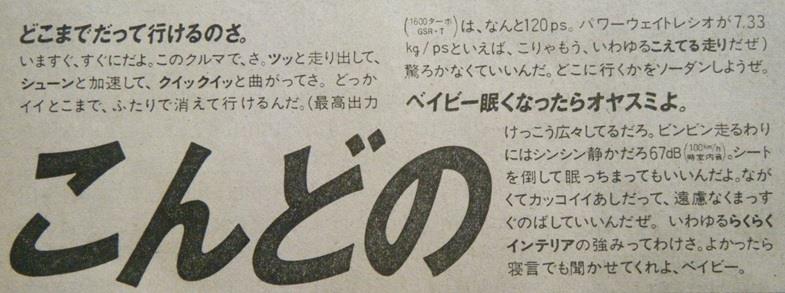 どこまでだって行けるのさ。
いますぐ、すぐにだよ。このクルマで、さ。ツッと走り出して、
シューンと加速して、クイックイッと曲がってさ。どっか
イイとこまで、ふたりで消えて行けるんだ。(最高出力
(1600ターボ GSR・T)は、なんと120ps。パワーウェイトレシオが7.33
kg/psといえば、こりゃもう、いわゆるこえてる走りだぜ)
驚ろかなくていいんだ。どこに行くかをソーダンしようぜ。
ベイビー眠くなったらオヤスミよ。
けっこう広々してるだろ。ビンビン走るわり
にはシンシン静かだろ67dB(100km/h 時室内音)。シート
を倒して眠っちまってもいいんだよ。なが
くてカッコイイあしだって、遠慮なくまっす
ぐのばしていいんだぜ。いわゆるらくらく
インテリアの強みってわけさ。よかったら
寝言でも聞かせてくれよ、ベイビー。
こんどの